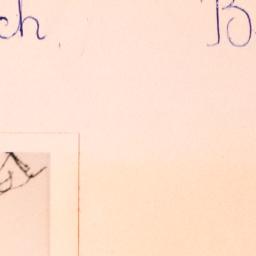 ch B